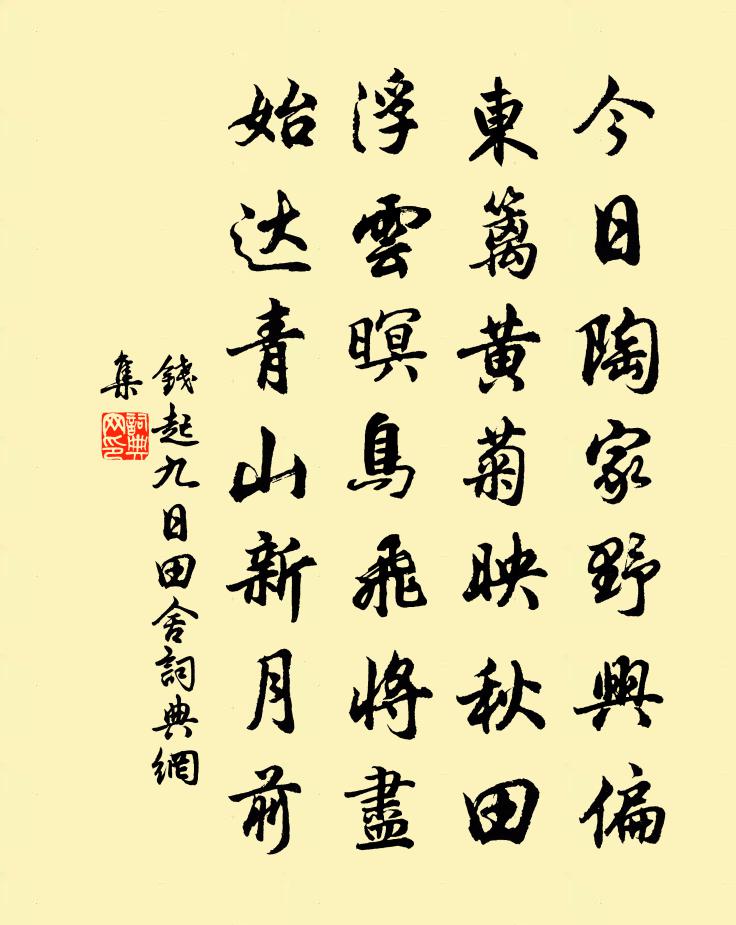 今日陶家野興偏
東籬黃菊映秋田
浮雲暝鳥飛將盡
始达青山新月前
錢起九日田舍詞典網
集
詞典
网印